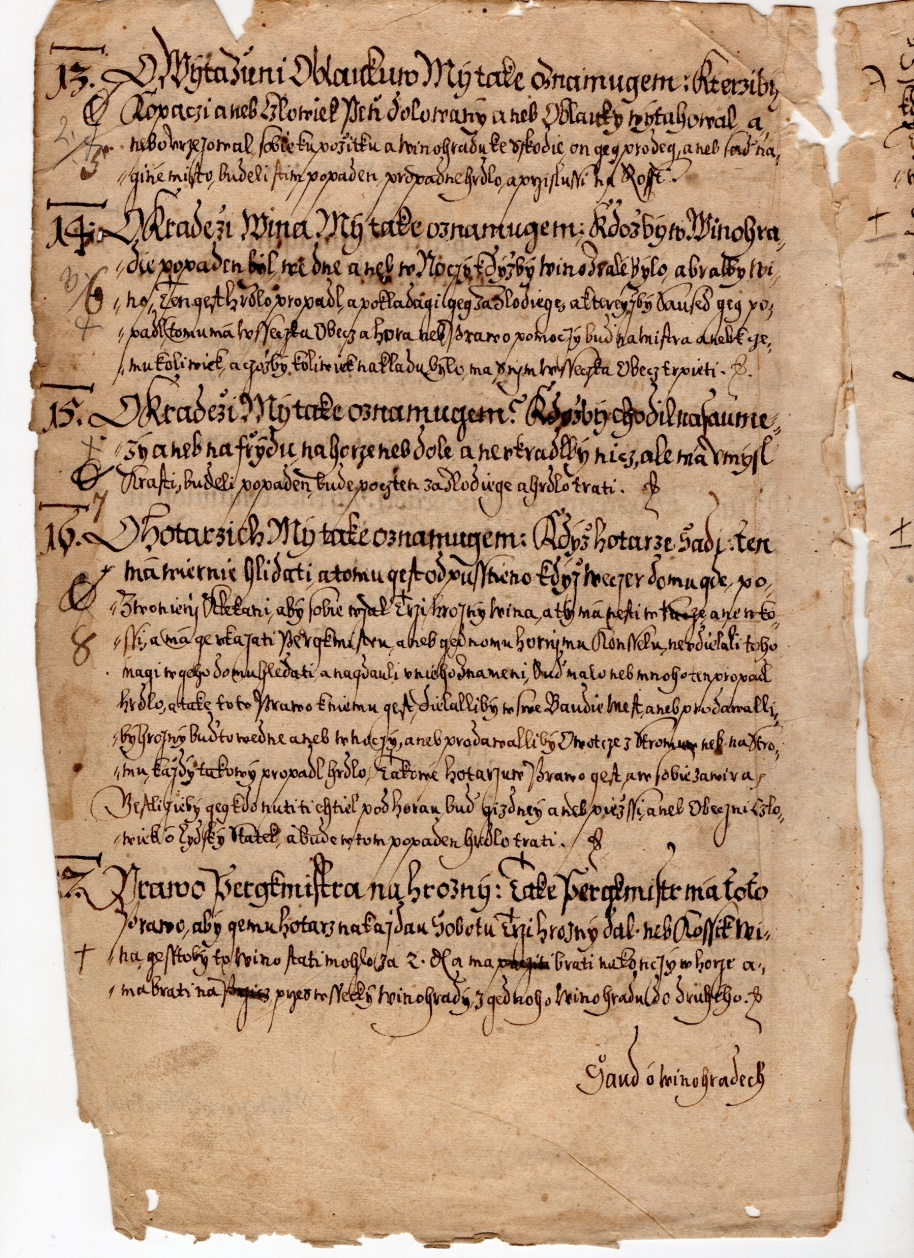 13. O Wytaženi Oblaukuw My take oznamugem: Kterziby
Kopaczi aneb Czlowiek Psti dolowany aneb Oblauky wytahowal a
2. nebo wrzezowal, sobie ku pozitku a winohradu ke sskodie on geg prodeg, aneb sad na
3 gine misto, budeli s tim popaden propadne hrdlo, a przislussi na Rosst.
14. O Kradeži Wina My take oznamugem: Kdozby w Winohra,
die popaden byl, we dne aneb w Noczy kdyžby wino drale bylo, a bralby wi,
6 no, Ten gest hrdlo propadl, a pokladagi geg za zlodiege, a ktereyžby Saused geg po,
+ padl, tomu ma wsseczka Obecz a hora neb Prawo pomoczy bud na mistra aneb k cze,
mu koliwiek, a czožby koliwiek nakladu bylo, ma s nym wsseczka Obecz trpieti.
15. O Kradeži My take oznamugem: Kdozby chodil na saume,
+ zy aneb na frydu na horze neb dole a nekradlby nicz, ale ma vmysl
Krasti, budeli popaden, bude pocžten za zlodiege a hrdlo trati.
7
16. O hotarzich My take oznamugem: Kdyz hotarze Sadj, ten
ma wiernie hlidati a tomu gest odpusstieno kdyz weczer domu gde, po,
Zwonieny Klekani, aby sobie wzal Trzi hrozny wina, a ty ma nesti w Rucze a ne w ko,
8 ssi, a ma ge vkazati Pergkmistru, aneb gednomu hornimu Konsselu, nevdielali toho
magi w geho domu hledati, a nagdauli v nieho znameni, bud malo neb mnoho ten propadl
hrdlo, a take toto Prawo k niemu gest, dielalliby w swe Baudie Mest, aneb prodawalli,
by hrozny bud to we dne aneb w noczy, aneb prodawalliby Owotcze z Stromuw neb na Stro,
mu každy takowy propadl hrdlo, Takowe hotarzuw Prawo gest a w sobie zawira,
Gestližieby geg kdo nutiti chtiel pod horau, bud gizdney aneb piessi, aneb Obeczni Czlo,
wiek o Lydsky Statek, a bude w tom popaden hrdlo trati.
17. Prawo Pergkmistra na hrozny: Take Pergkmistr ma toto
Prawo, aby gemu hotarz na každau Sobotu Trzi hrozny dal. neb Kossik wi,
+ na gesstoby to wino stati mohlo za 2. d a ma brati na konczy w horze a,
ma brati na przes wsseczky winohrady, z gednoho Winohradu do druheho.
Saud o winohradech